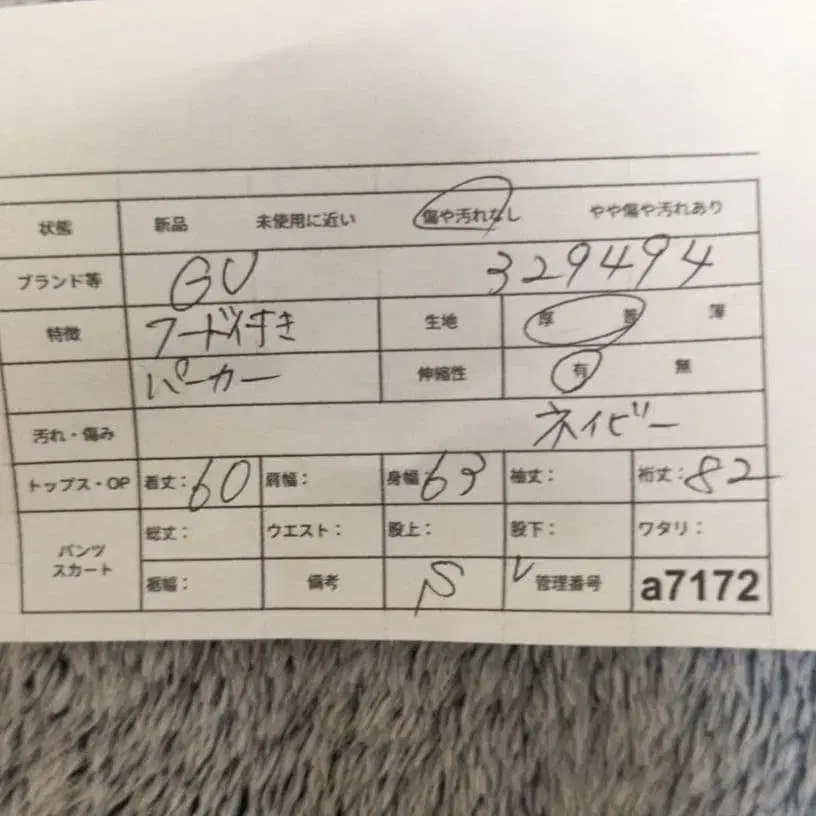 状態 新品 未使用に近い 傷や汚れなし やや傷や汚れあり
ブランド等 GU 329494
特徴 フード付き 生地 厚 普 薄
パーカー 伸縮性 有 無
汚れ・傷み ネイビー
トップス・OP 着丈：60 肩幅： 身幅：63 袖丈： 裄丈：82
パンツ スカート 総丈： ウエスト： 股上： 股下： ワタリ：
裾幅： 備考 S 管理番号 a7172